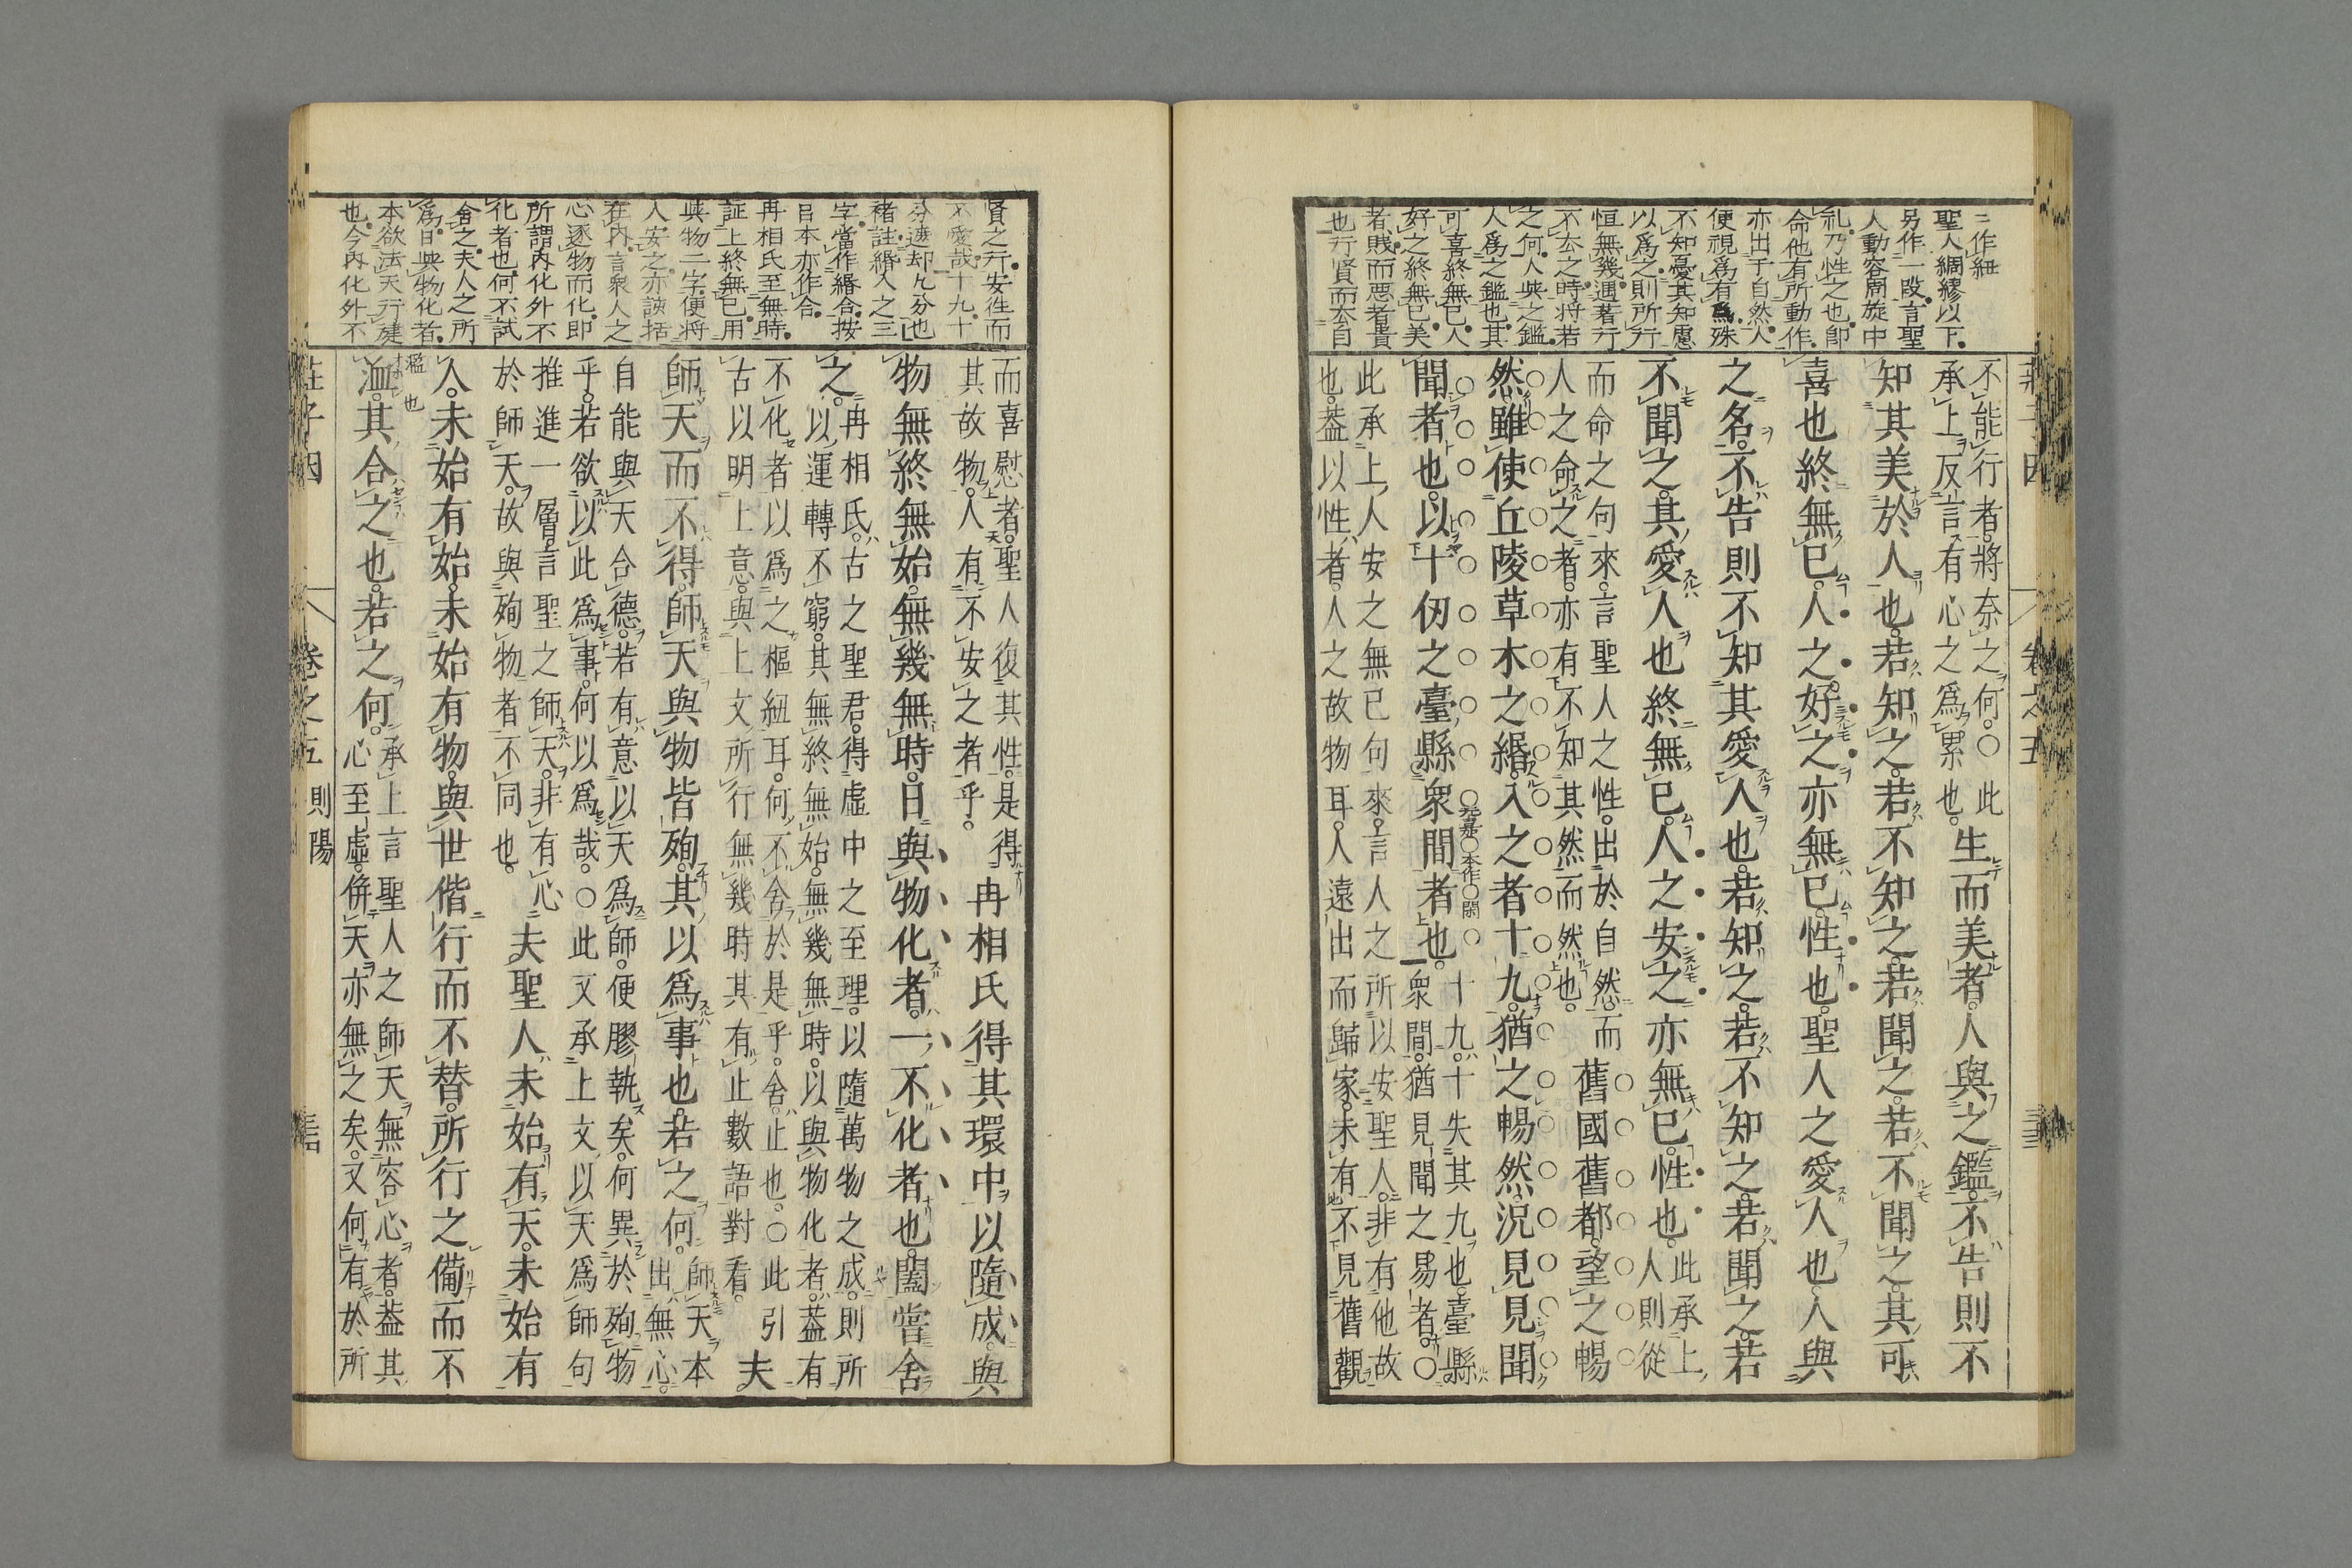 二作紐
聖人綢繆以下
另作一段言聖
人動容周旋中
礼乃性之也卽
命他有所動作
亦出于自然人
便視爲有爲殊
不知憂其知慮
以爲之則所行
恒無幾遇著行
不去之時将若
之何人與之鑑
人爲之鑑也其
可喜終無已人
好之終無已美
者賎而悪者貴
也行賢而去自
不能行者將奈之何○此
承上反言有心之爲累也
生而美者人與之鑑不告則不
知其美於人也若知之若不知之若聞之若不聞之其可
喜也終無已人之好之亦無已性也聖人之愛人也人與
之名不告則不知其愛人也若知之若不知之若聞之若
不聞之其愛人也終無已人之安之亦無已性也
此承上
人則從
而命之句來言聖人之性出於自然而
人之命之者亦有不知其然而然也
舊國舊都望之暢
然雖使丘陵草木之緡入之者十九猶之暢然況見見聞
聞者也以十仞之臺縣衆間者也
十九十失其九也臺縣
衆間猶見聞之易者○
此承上人安之無已句來言人之所以安聖人非有他故
也葢以性者人之故物耳人遠出而歸家未有不見舊觀
莊子因
卷之五
賢之行安往而
不愛哉十九十
分遮却九分也
褚註緡入之三
字當作緡合按
㠯本亦作合
冉相氏至無時
証上終無已用
與物二字便将
人安之亦該括
在内言衆人之
心逐物而化即
所謂内化外不
化者也何不試
舍之夫人之所
爲日與物化者
本欲法天行健
也今内化外不
而喜慰者聖人復其性是得
其故物人有不安之者乎
冉相氏得其環中以隨成與
物無終無始無幾無時日與物化者一不化者也闔嘗舍
之
冉相氏古之聖君得虛中之至理以隨萬物之成則所
以運轉不窮其無終無始無幾無時以與物化者葢有
不化者以爲之樞紐耳何不舍於是乎舍止也○此引
古以明上意與上文所行無幾時其有止數語對看
夫
師天而不得師天與物皆殉其以爲事也若之何
師天本
出無心
自能與天合德若有意以天爲師便膠執矣何異於殉物
乎若欲以此爲事何以爲哉○此又承上文以天爲師句
推進一層言聖之師天非有心
於師天故與殉物者不同也
夫聖人未始有天未始有
人未始有始未始有物與世偕行而不替所行之備而不
洫其合之也若之何
承上言聖人之師天無容心者葢其
心至虛倂天亦無之矣又何有於所
濫
也
莊子因
卷之五
則陽